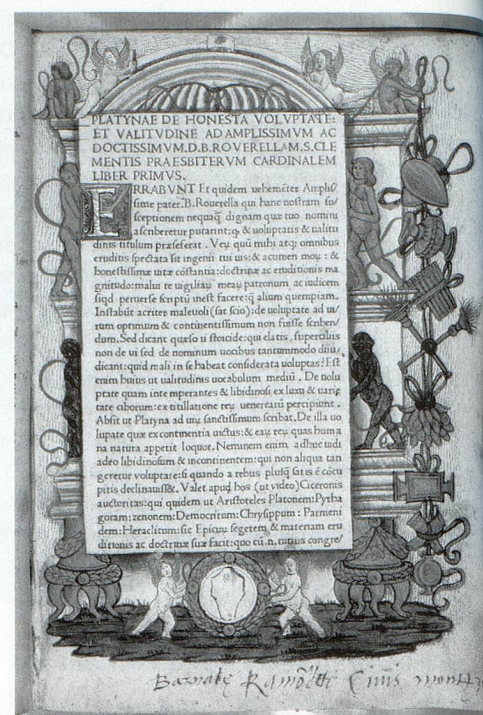 PLATYNAE DE HONESTA VOLVPTATE:
ET VALITVDINE AD AMPLISSIMVM AC
DOCTISSIMVM.D.B.ROVERELLAM.S.CLE
MENTIS PRAESBITERVM CARDINALEM
LIBER PRIMVS.
ERRABVNT Et quidem uehemēter Amplis
sime pater.B.Rouerella qui hanc nostram su/
sceptionem nequaq̄ dignam quæ tuo nomini
ascriberetur putarint: & uoluptatis & ualitu
dinis titulum præseferat. Veȝ quū mihi atq; omnibus
eruditis spectata sit ingenii tui uis: & acumen moȝ: &
honestissimæ uitæ cōstantia: doctrinæ ac eruditionis ma
gnitudo: malui te uigiliaȝ meaȝ patronum ac iudicem
siqd peruerse scriptū inest facere: q̄ alium quempiam.
Instabūt acriter maleuoli (sat scio): de uoluptate ad ui/
rum optimum & continentissimum non fuisse scriben/
dum. Sed dicant quæso ii stoicidæ: qui elatis superciliis
non de ui sed de nominum uocibus tantummodo diiu/
dicant: quid mali in se habeat considerata uoluptas? Est
enim huius ut ualitudinis uocabulum mediū. De uolu
ptate quam intemperantes & libidinosi ex luxu & uarie
tate ciborum: ex titillatione reȝ uenerearū percipiunt.
Absit ut Platyna ad uiȝ sanctissimum scribat. De illa uo
luptate quæ ex continentia uictus: & eaȝ reȝ quas huma
na natura appetit loquor. Neminem enim adhuc uidi
adeo libidinosum & incontinentem: qui non aliqua tan
geretur uoluptate: si quando a rebus plusq̄ satis ē cōcu
pitis declinauisset. Valet apud hos (ut uideo) Ciceronis
auctoritas: qui quidem ut Aristoteles Platonem: Pytha
goram: zenonem: Democritum: Chrysippum: Parmeni
dem: Heraclitum: sic Epicuȝ segetem & materiam eru
ditionis ac doctrinæ suæ facit: quo cū.n.tutius congre/
Barnabę